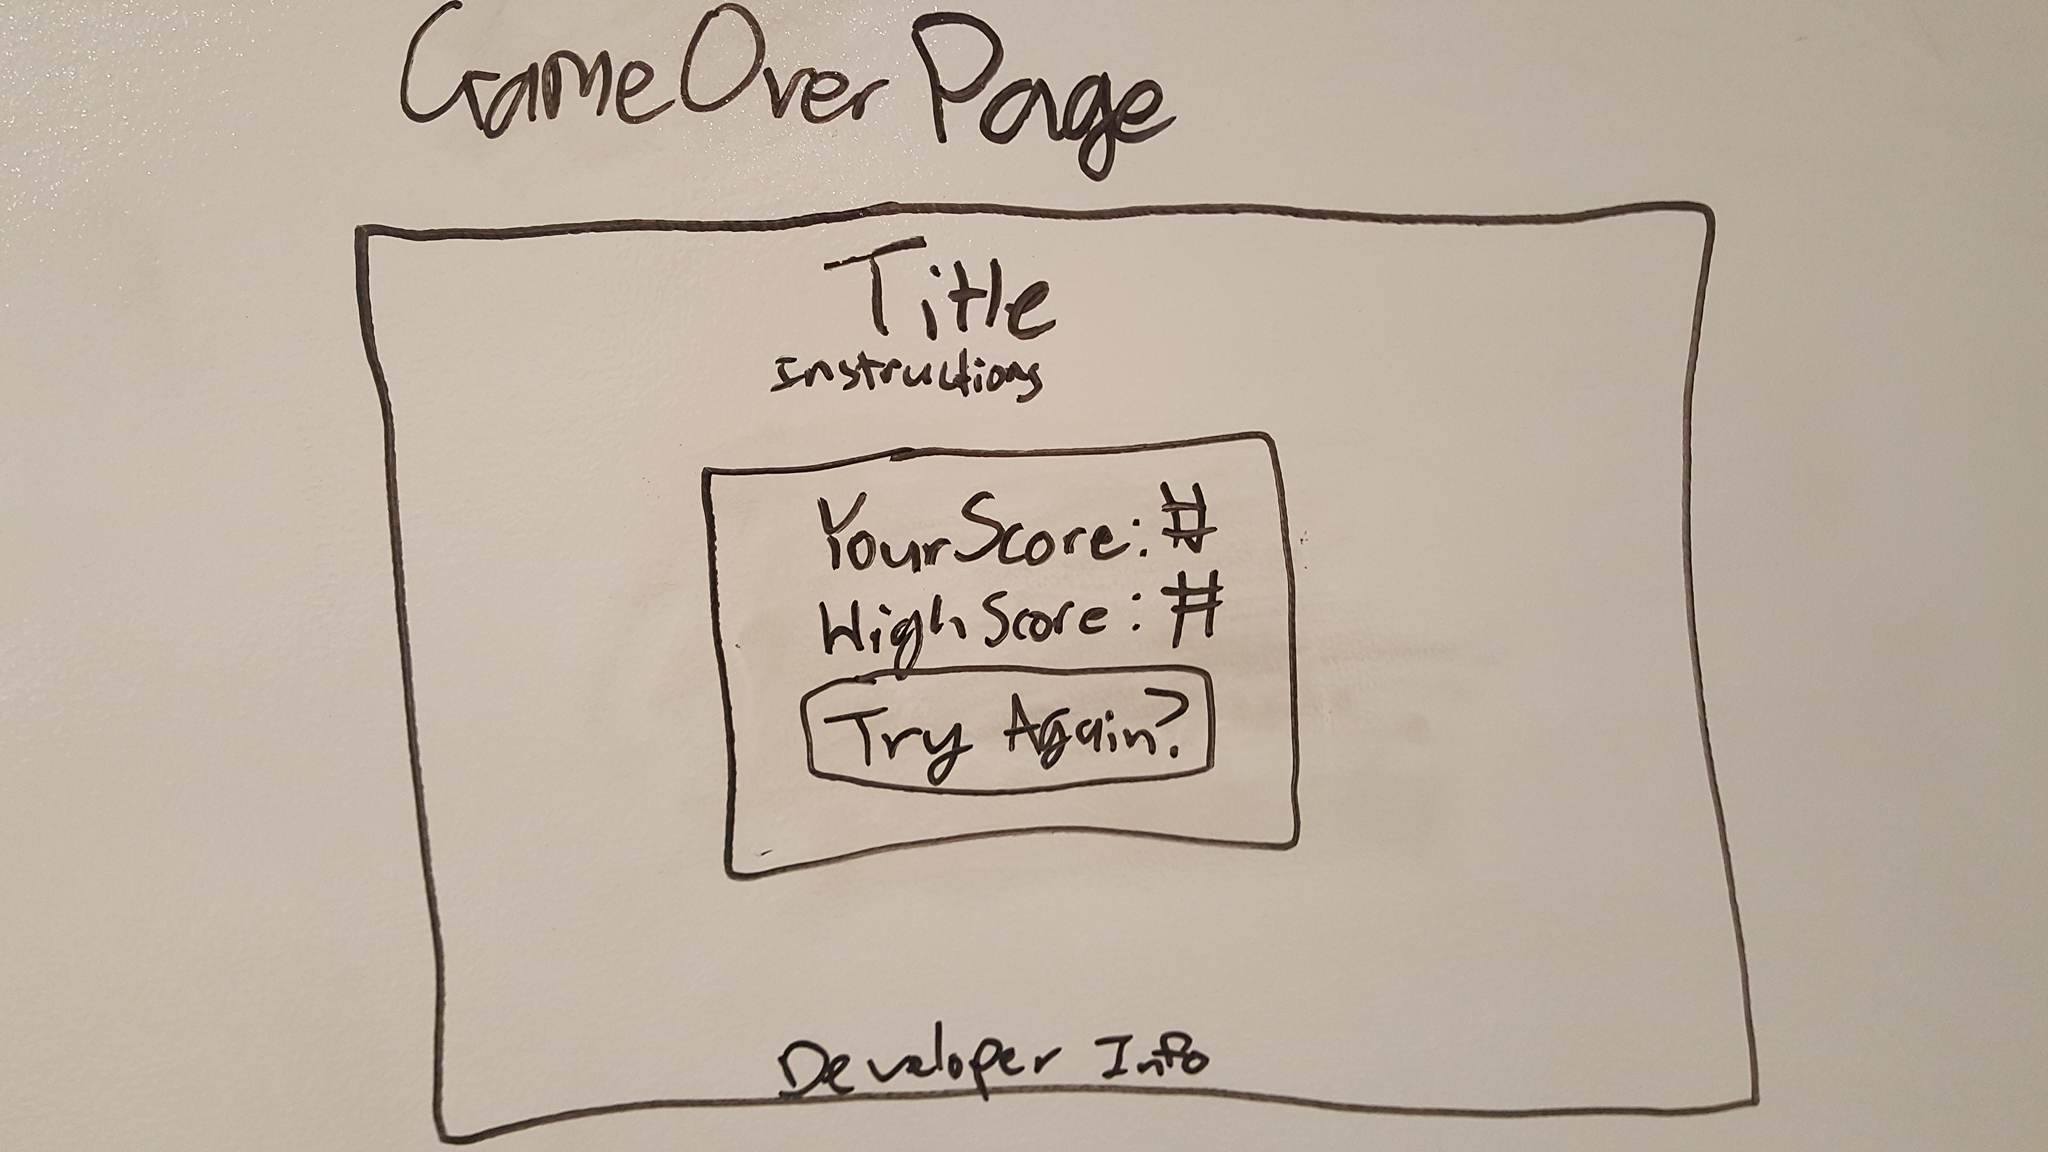 Game Over Page
Title
Instructions
Your Score: #
High Score: #
Try Again?
Developer Info